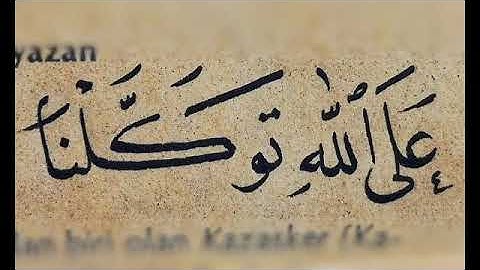 yazan
عَلَى اللّٰهِ تَوَكَّلْنَا
dan biri olan Kazasker (Ka-